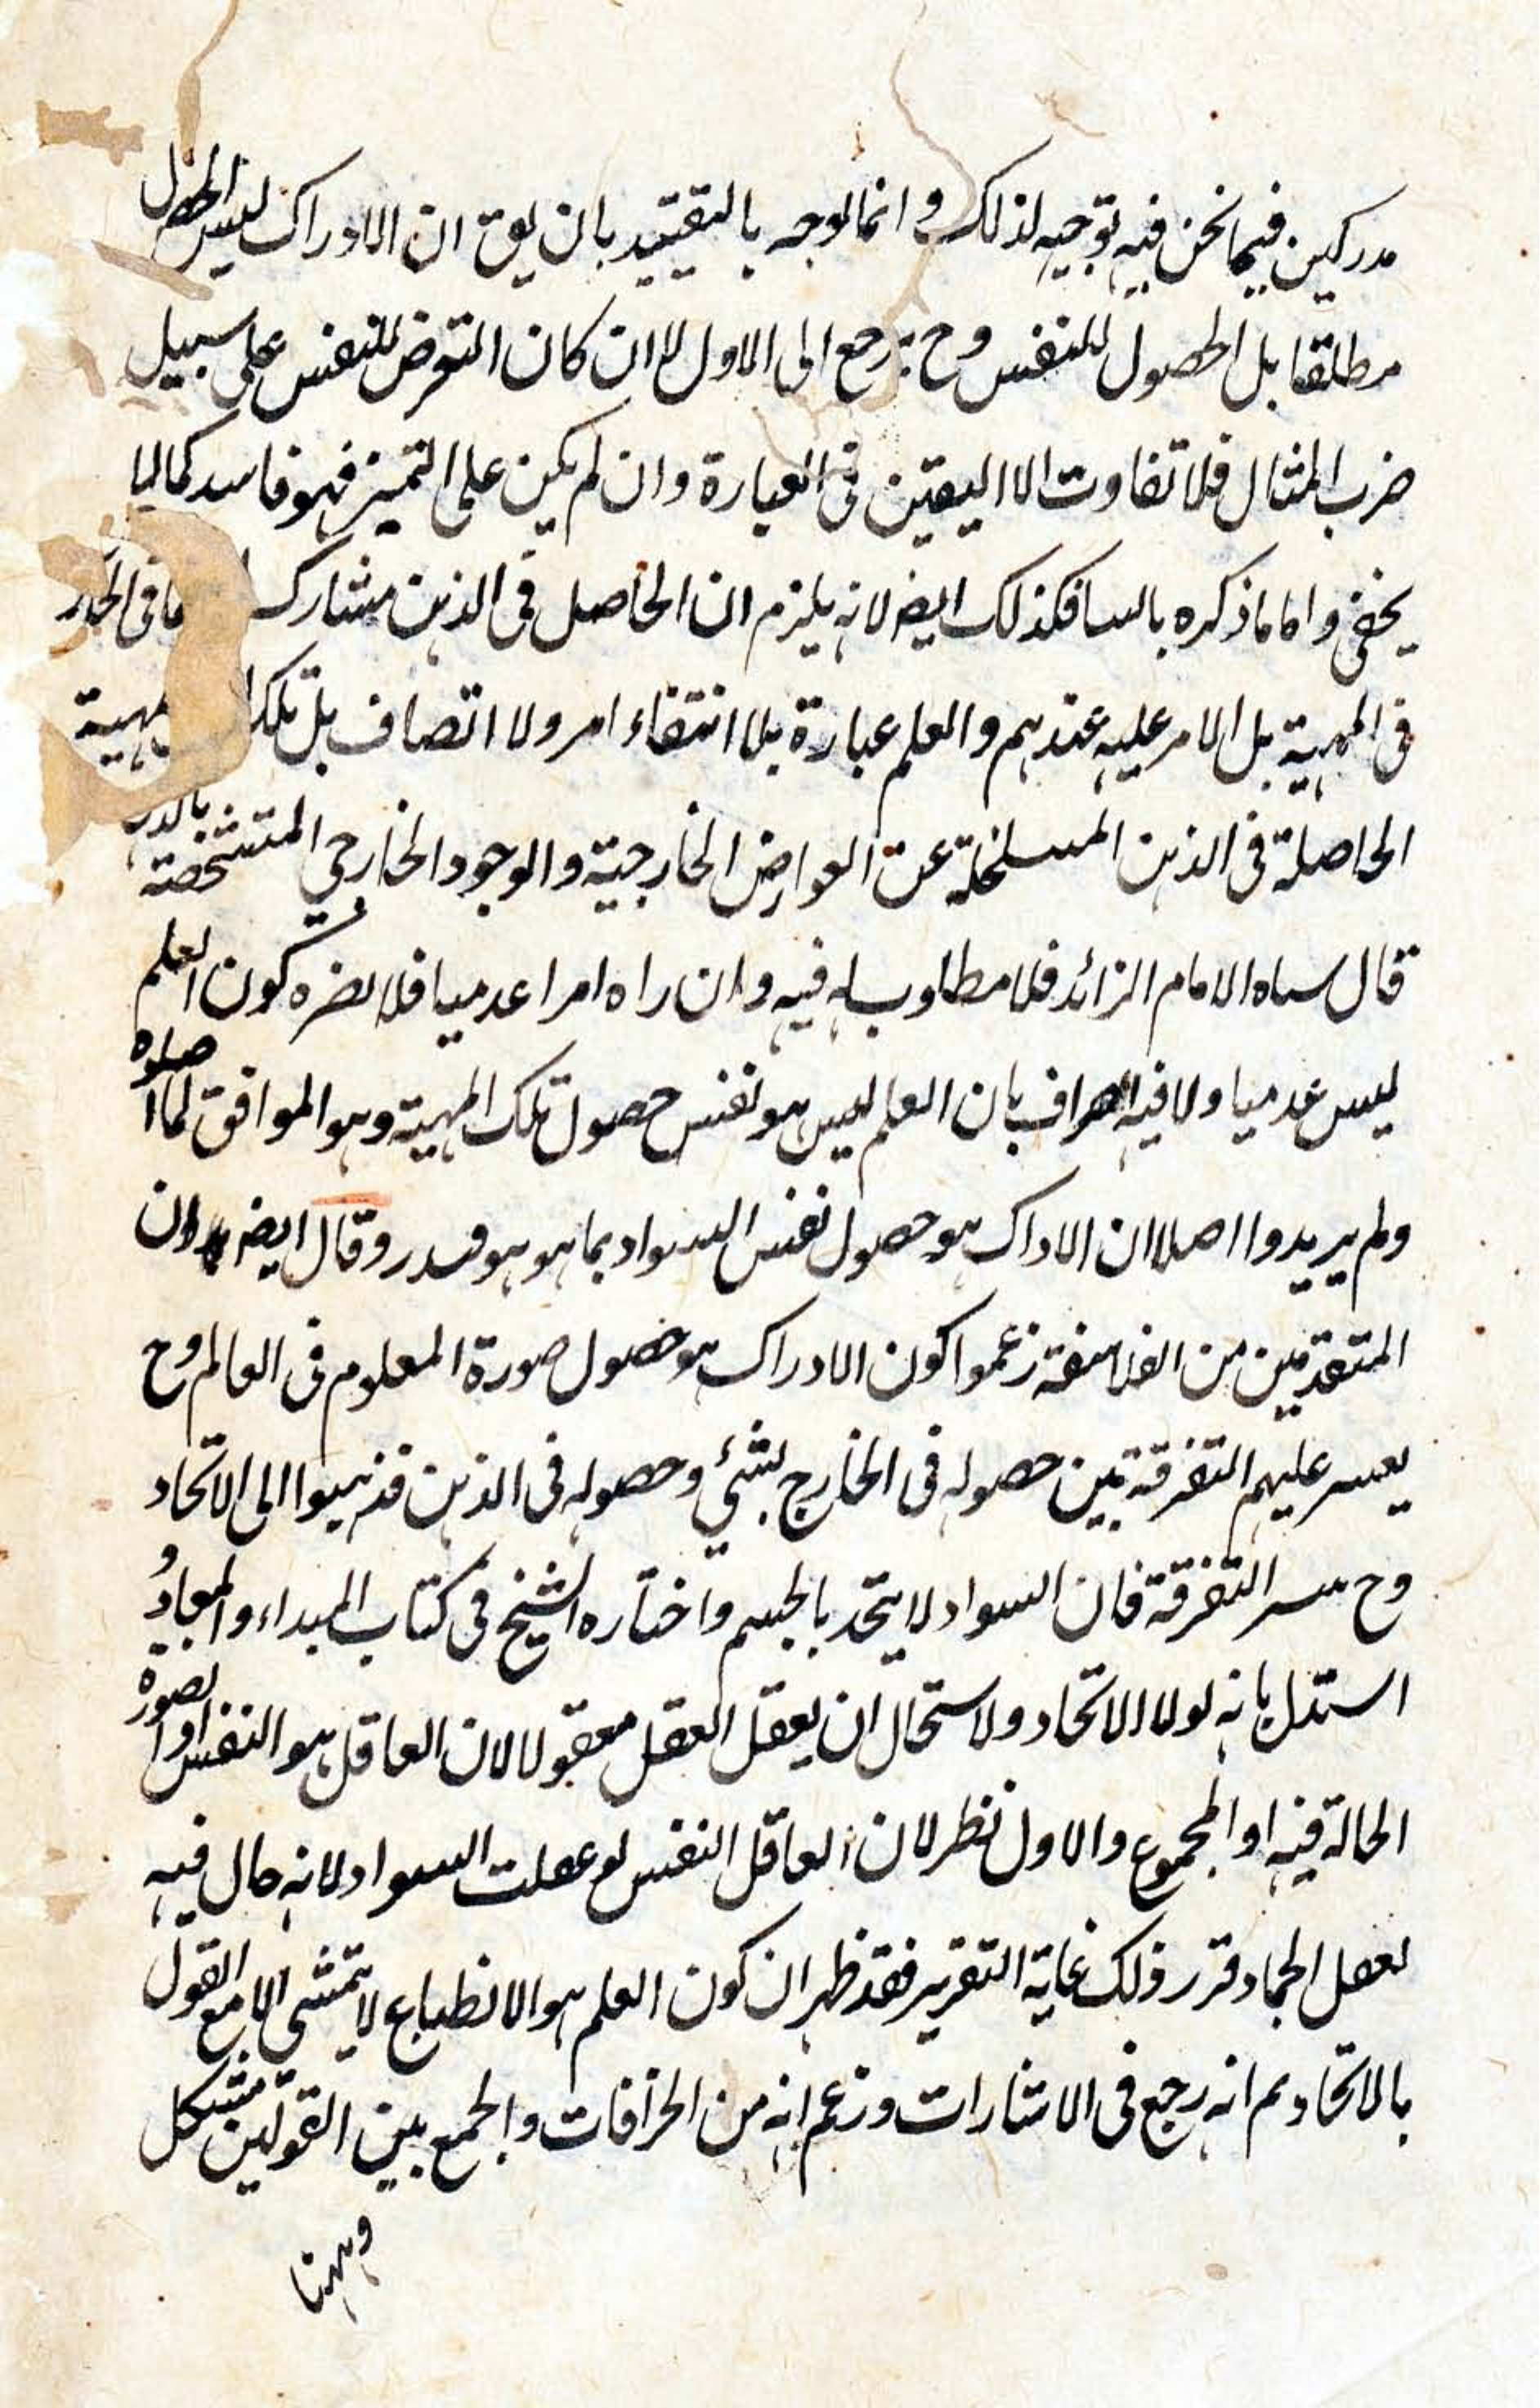 مدركين فيما نحن فيه توجيه لذلك وانما لوجه بالتقييد بان يق ان الادراك ليس الحصول
مطلقا بل الحصول للنفس وح يرجع الى الاول لا ان كان التعرض للنفس على سبيل
ضرب المثال فلا تفاوت الا اليقين فى العبارة وان لم يكن على التميز فهو فاسد كما لا
يخفى واما ما ذكره بالسا فكذلك ايض لانه يلزم ان الحاصل فى الذهن مشارك ما فى الخار
فى المهية بل الامر عليه عندهم والعلم عبارة بلا انتفاء امر ولا اتصاف بل تلك المهية
الحاصلة فى الذهن المنسلخة عن العوارض الخارجية والوجود الخارجي المتشخصة
قال الامام الزائد فلا مطلوب له فيه وان راه امرا عدميا فلا يضره كون العلم
ليس عدميا ولا فيه بان العلم ليس هو نفس حصول تلك المهية وهو الموافق لما
ولم يريدوا اصلا ان الاداك هو حصول نفس السواد بما هو هو وقال ايض ان
المتقدمين من الفلاسفة زعموا كون الادراك هو حصول صورة المعلوم فى العالم وح
يعسر عليهم التفرقة بين حصوله فى الخارج بشئ وحصوله فى الذهن فذهبوا الى الاتحاد
وح التفرقة فان السواد لا يتحد بالجسم واختاره الشيخ فى كتاب المبداء والمعاد و
استدل بانه لولا الاتحاد ولاستحال ان يعقل العقل معقولا لان العاقل هو النفس او الصورة
الحالة فيه او المجموع والاول نظر لان العاقل النفس لو عقلت السواد لانه حال فيه
لعقل الجماد قرر ذلك غاية التقرير فقد ظهر ان كون العلم هو الانطباع لا يتمشى الا مع القول
بالاتحاد ثم انه رجع فى الاشارات وزعم انه من الخرافات والجمع بين القولين مشكل
وههنا